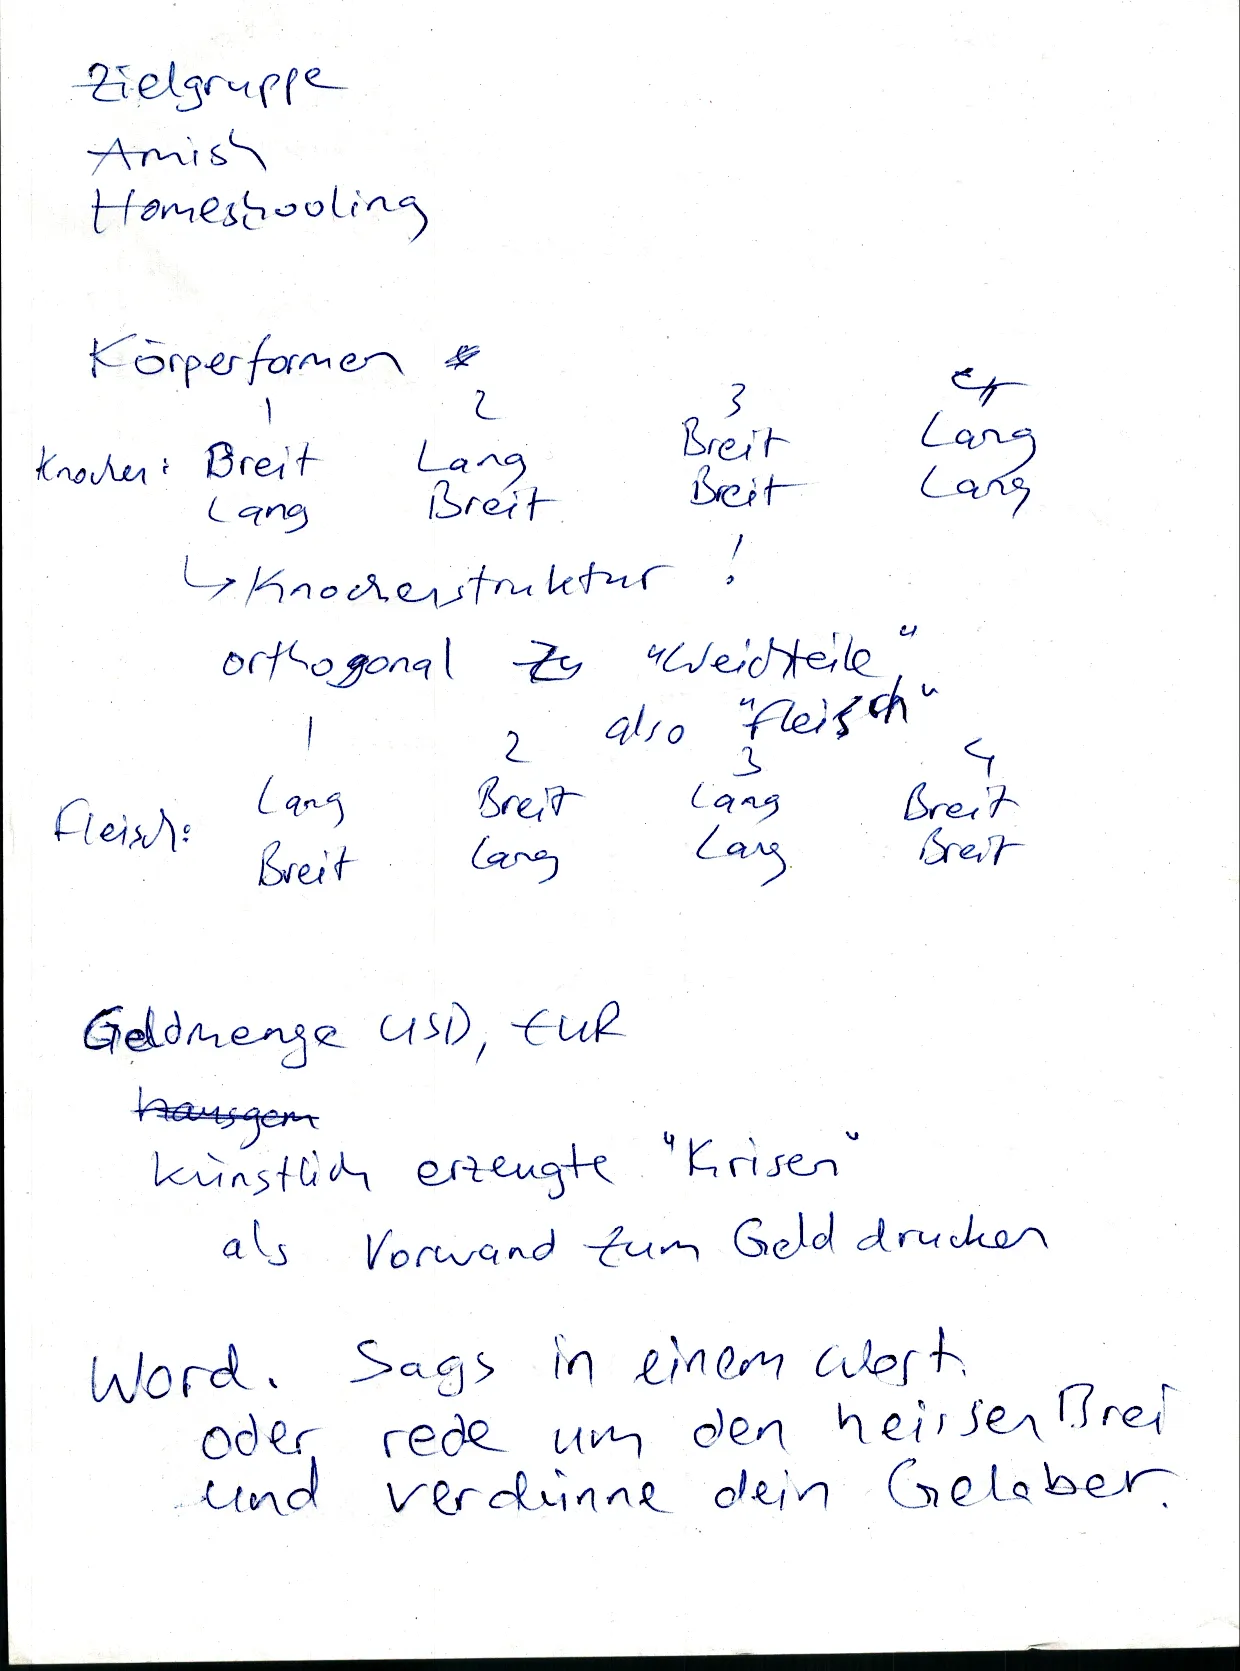 Zielgruppe
Amish
Homeshooling
Körperformen *
1 2 3 4
Knochen: Breit Lang Breit Lang
Lang Breit Breit Lang
↳ Knochenstruktur !
orthogonal zu "Weichteile"
also "Fleisch"
1 2 3 4
Fleisch: Lang Breit Lang Breit
Breit Lang Lang Breit
Geldmenge USD, EUR
hausgem
künstlich erzeugte "Krisen"
als Vorwand zum Geld drucken
Word. Sags in einem Wort.
oder rede um den heissen Brei
und verdünne dein Gelaber.